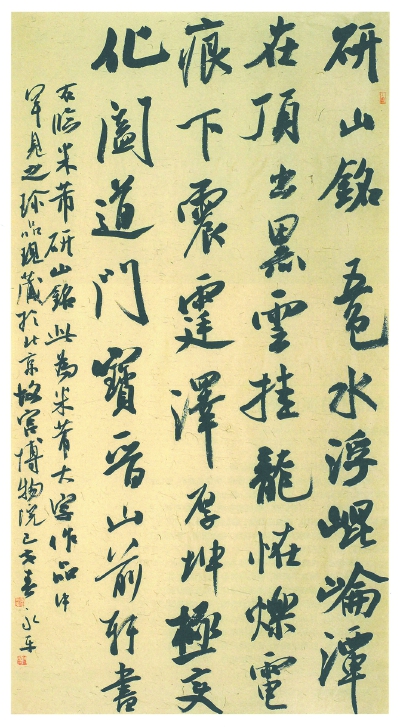 研山銘 五色水浮崐崘潭
在頂出黑雲挂龍怪爍電
痕下震霆澤厚坤極变
化闔道門寶晉山前軒書
右臨米芾研山銘此為米芾大字作品中
罕見之珍品現藏於北京故宮博物院己亥春永